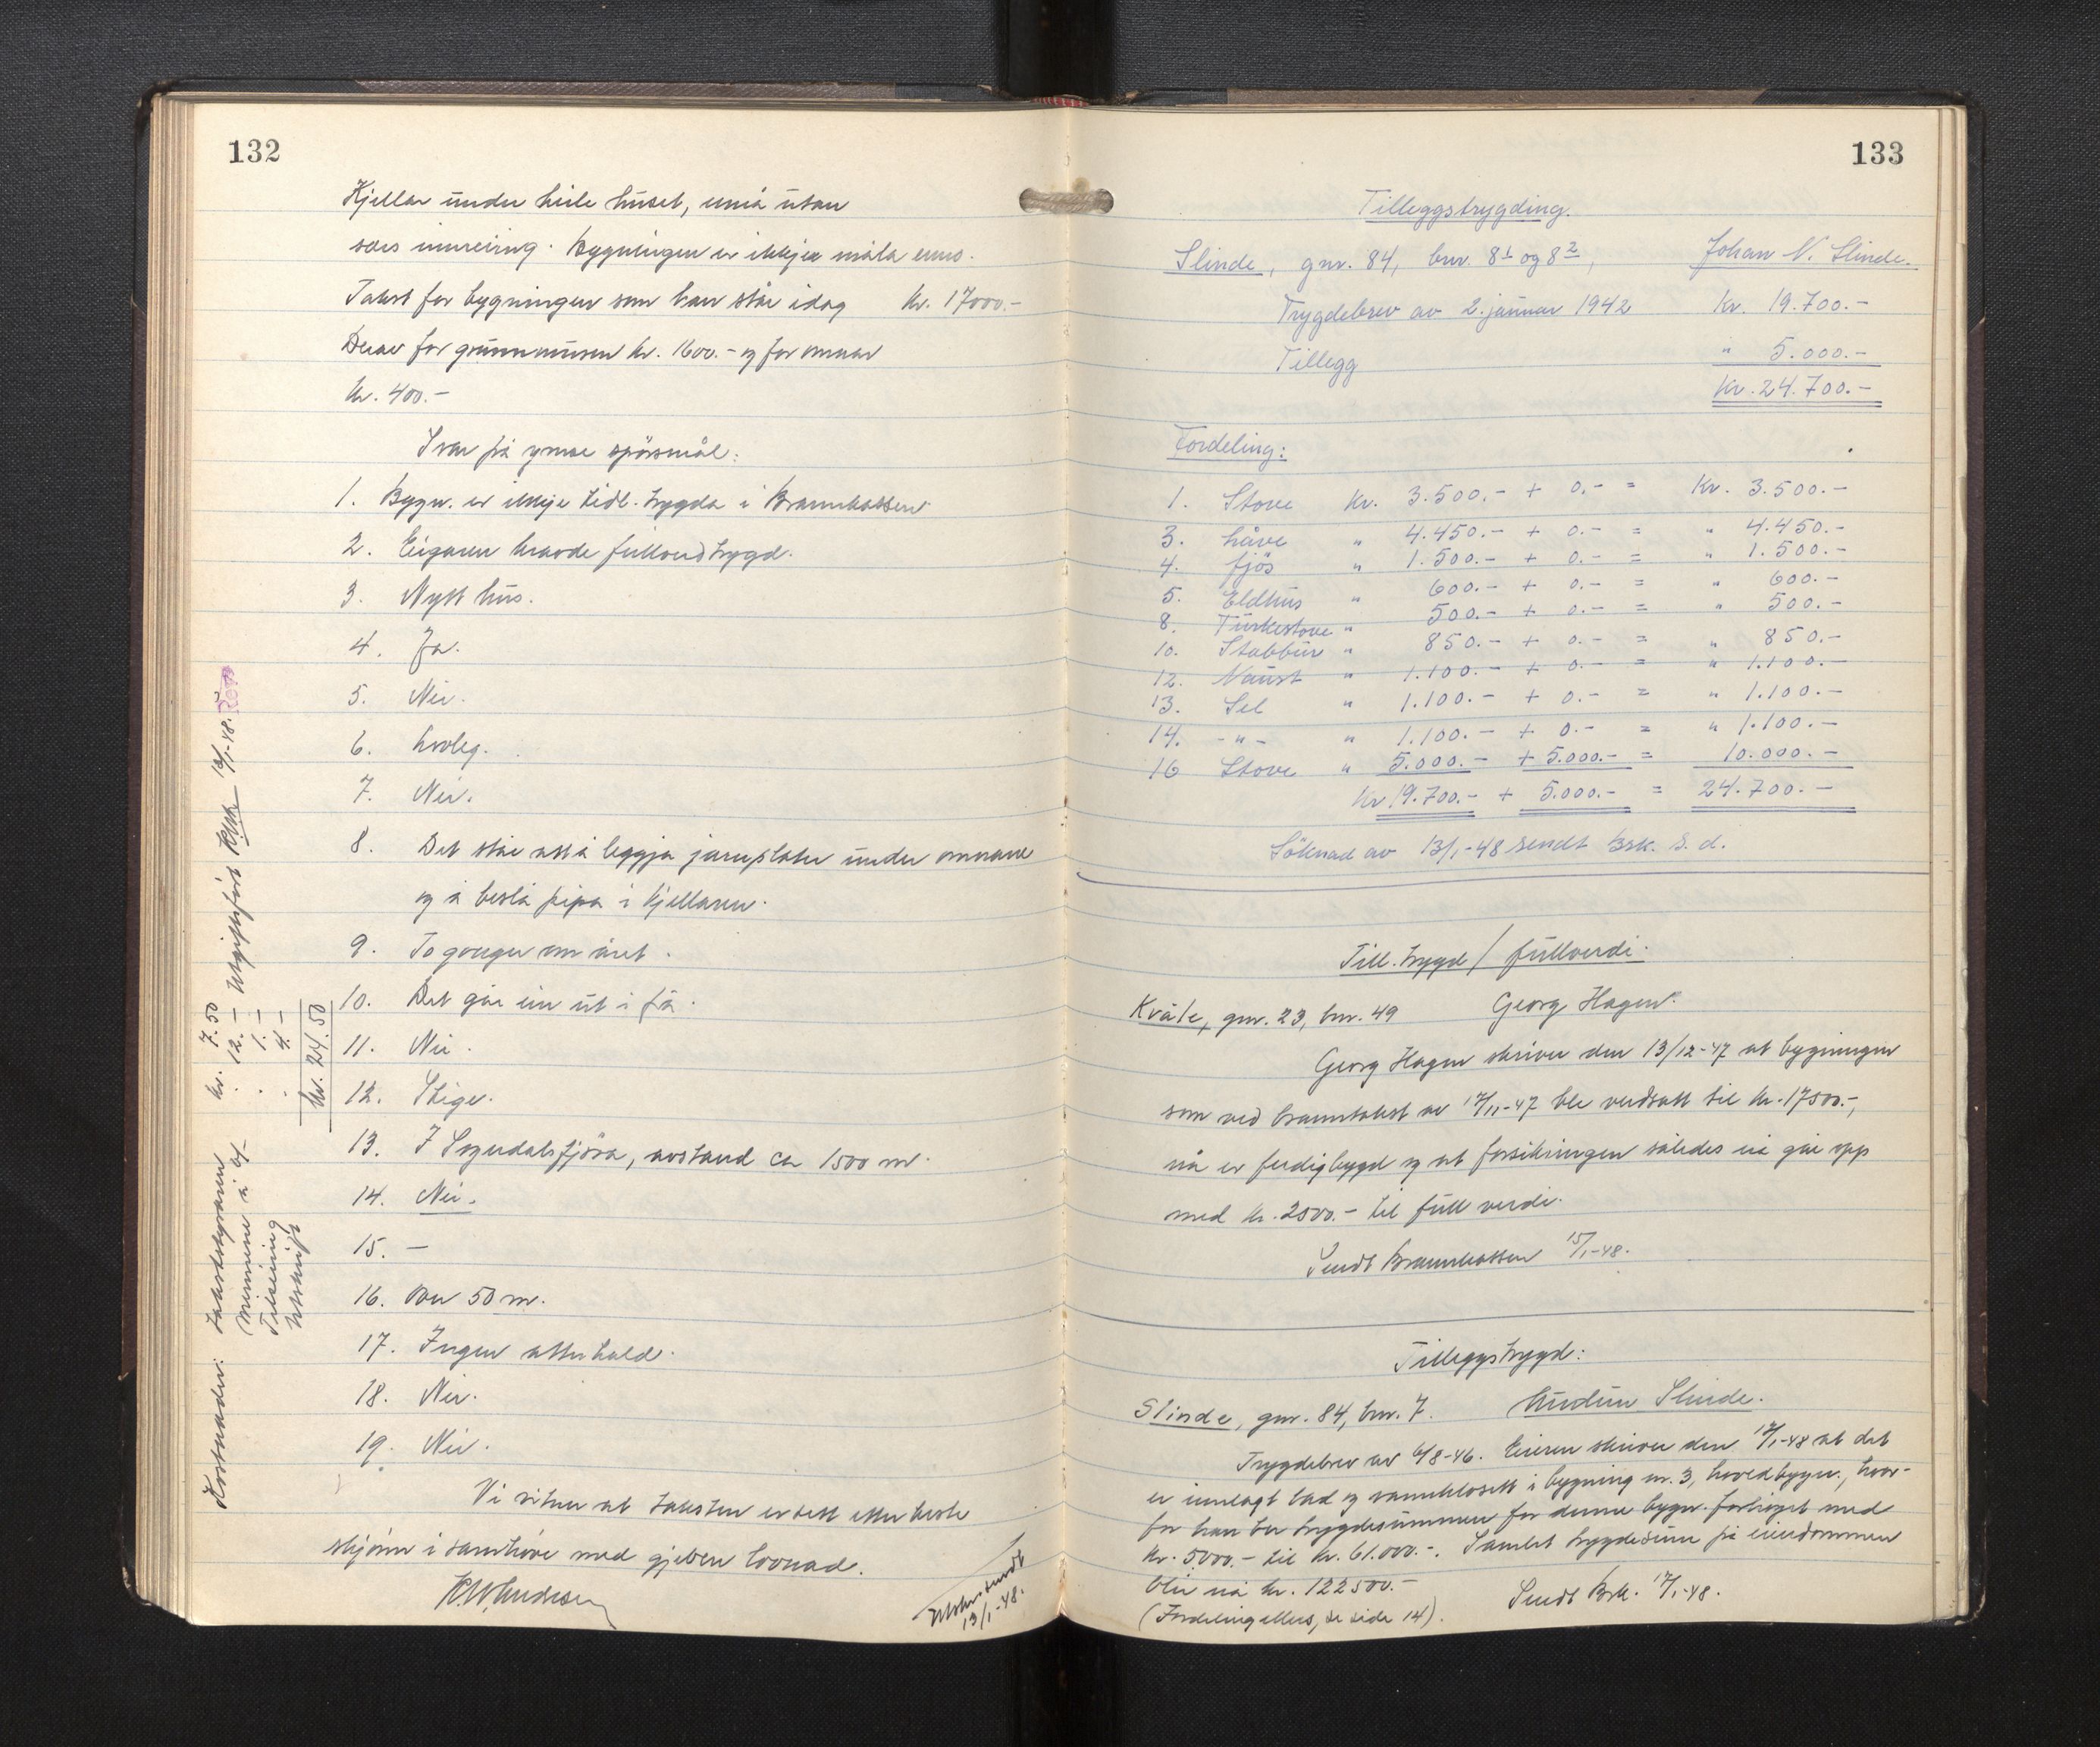 132
Kjellar under heile huset, umå utan
sers innreiing. Bygningen er ikkje måla enno.
Takst for bygningen som han står idag kr. 17000.-
Derav for grunnmuren kr. 1600.- og for omnar
kr. 400.-
Svar på ymse spörsmål:
1. Bygn. er ikkje tidl. trygda i Brannkassen
2. Eigaren kravde fullverdtrygd.
3. Nytt hus.
4. Ja.
5. Nei.
6. Lovleg.
7. Nei.
8. Det står att å leggja jarnplater under omnane
og å beslå pipa i kjellaren.
9. To gonger om året.
10. Det går inn ut i frå.
11. Nei.
12. Stige.
13. I Sogndalsfjöra, avstand ca 1500 m.
14. Nei.
15. —
16. Over 50 m.
17. Ingen atterhald.
18. Nei.
19. Nei.
Vi vitner at taksten er sett etter beste
skjönn i samhöve med gjeven lovnad.
Utskr. sendt
13/1-48.
Kostnader: Takstbygraren kr. 7.50
12.-
Tilseining 1.-
Utskrift 4.-
kr. 24.50
13/1-48.
133
Tilleggstrygding.
Slinde, gnr. 84, bnr. 8¹ og 8², Johan N. Slinde.
Trygdebrev av 2. januar 1942 Kr. 19.700.-
Tillegg " 5.000.-
Kr. 24.700.-
Fordeling:
1. Stove Kr. 3.500.- + 0.- = Kr. 3.500.-
3. Låve " 4.450.- + 0.- = " 4.450.-
4. fjös " 1.500.- + 0.- = " 1.500.-
5. Eldhus " 600.- + 0.- = " 600.-
8. Turkestove " 500.- + 0.- = " 500.-
10. Stabbur " 850.- + 0.- = " 850.-
12. Naust " 1.100.- + 0.- = " 1.100.-
13. Sel " 1.100.- + 0.- = " 1.100.-
14. -"- " 1.100.- + 0.- = " 1.100.-
16 Stove " 5.000.- + 5.000.- = 10.000.-
Kr 19.700.- + 5.000.- = 24.700.-
Söknad av 13/1-48 sendt Brk. s. d.
Till.trygd / fullverdi.
Kvåle, gnr. 23, bnr. 49 Georg Hagen.
Georg Hagen skriver den 13/12-47 at bygningen
som ved branntakst av 17/11-47 ble verdsatt til kr. 17500.-,
nå er ferdigbygd og at forsikringen således nå går opp
med kr. 2500.- til full verdi.
Sendt Brannkassen 15/1-48.
Tilleggstrygd:
Slinde, gnr. 84, bnr. 7. Audun Slinde.
Trygdebrev av 6/8-46. Eieren skriver den 17/1-48 at det
er innlagt bad og vannklosett i bygning nr. 3, hovedbygn., hvor-
for han ber trygdesummen for denne bygn. forhöyet med
kr. 5000.- til kr. 61.000.-. Samlet trygdesum på eiendommen
blir nå kr. 122500.-
(Fordeling ellers, se side 14). Sendt Brk. 17/1-48.